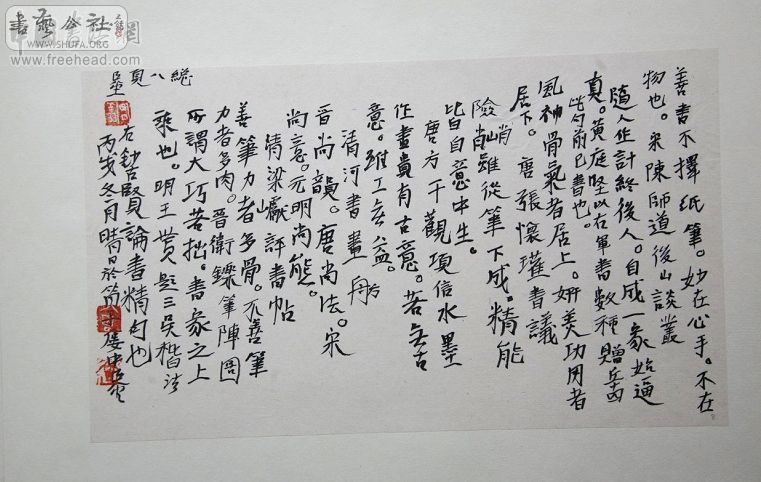 善書不擇纸筆。妙在心手。不在
物也。宋陳師道後山談叢
隨人作計終後人。自成一家始逼
真。黄庭堅以右軍書數種贈丘十四
此句前已書也。
風神骨氣者居上。妍美功用者
居下。唐張懷瓘書議
險峭雖從筆下成。精能
皆自意中生。
唐方干觀項信水墨
作畫貴有古意。若無古
意。雖工無益。
清河書畫舫
晋尚韻。唐尚法。宋
尚意。元明尚能。
清梁巘評書帖
善筆力者多骨。不善筆
力者多肉。晋衛鑠筆陣圖
所謂大巧若拙。書家之上
乘也。明王世贞題三吳楷法
右鈔賢論書精句也
丙戌冬月晴日於
總八頁
書藝公社
WWW.SHUFA.ORG
www.freehead.com